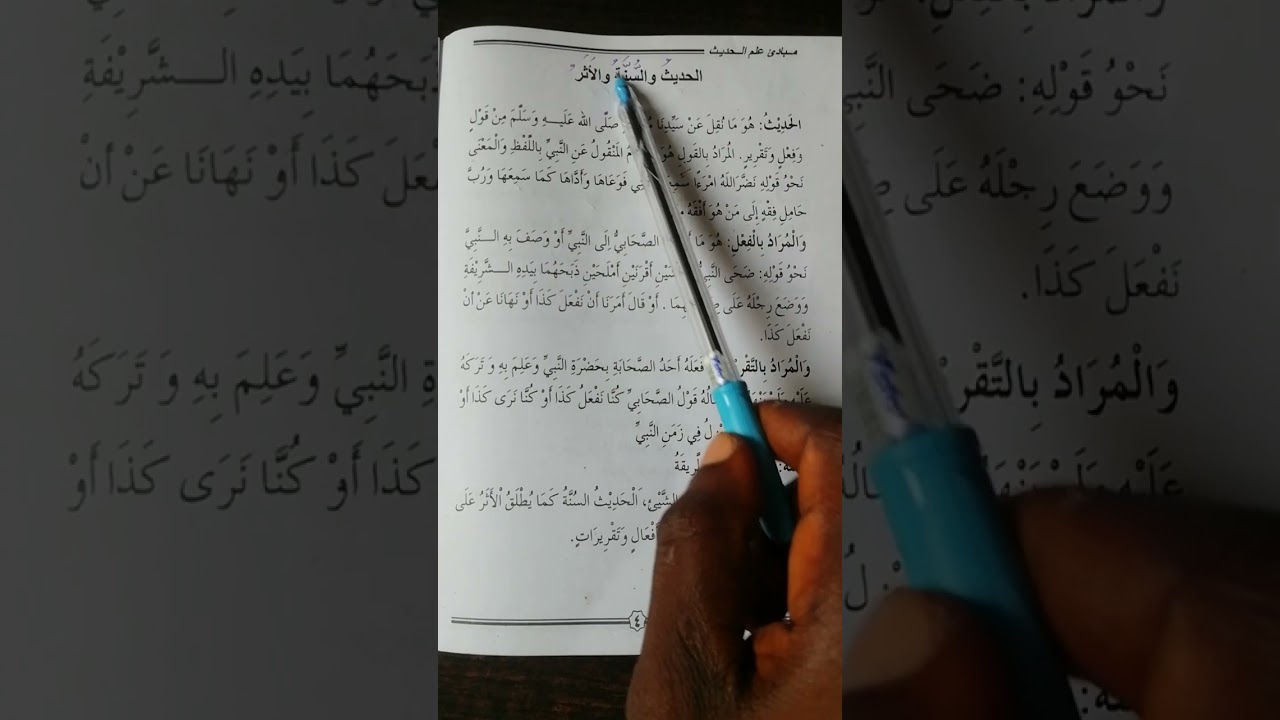 مبادئ علم الحديث
الحديثُ والسُّنَّةُ والأَثَرُ
الحَدِيْثُ: هُوَ مَا نُقِلَ عَنْ سَيِّدِنَا صَلَّى الله عَلَيهِ وَسَلَّمَ مِنْ قَوْلٍ
وَفِعْلٍ وَتَقْرِيرٍ. المُرَادُ بِالقَوْلِ هُوَ المَنْقُولُ عَنِ النَّبِيِّ بِاللَّفْظِ وَالْمَعْنَى
نَحْوُ قَوْلِهِ نَضَّرَاللهُ امْرَءًا فَوَعَاهَا وَأَدَّاهَا كَمَا سَمِعَهَا وَرُبَّ
حَامِلِ فِقْهٍ إِلَى مَنْ هُوَ أَفْقَهُ.
وَالْمُرَادُ بِالْفِعْلِ: هُوَ مَا الصَّحَابِيُّ اِلَى النَّبِيِّ أَوْ وَصَفَ بِهِ النَّبِيَّ
نَحْوُ قَوْلِهِ: ضَحَى النَّبِيُّ أَقْرَنَيْنِ أَمْلَحَيْنِ ذَبَحَهُمَا بِيَدِهِ الشَّرِيْفَةِ
وَوَضَعَ رِجْلَهُ عَلَى . أَوْ قَالَ أَمَرَنَا أَنْ نَفْعَلَ كَذَا أَوْ نَهَانَا عَنْ أنْ
نَفْعَلَ كَذَا.
وَالْمُرَادُ بِالتَّقْرِ فَعَلَهُ أَحَدُ الصَّحَابَةِ بِحَضْرَةِ النَّبِيِّ وَعَلِمَ بِهِ وَ تَرَكَهُ
قَوْلُ الصَّحَابِيِّ كُنَّا نَفْعَلُ كَذَا أَوْ كُنَّا نَرَى كَذَا أَوْ
فِي زَمَنِ النَّبِيِّ
الشَّيْئِ، اَلْحَدِيْثُ السُنَّةُ كَمَا يُطْلَقُ الْأَثَرُ عَلَى
وَتَقْرِيرَاتٍ.
٤